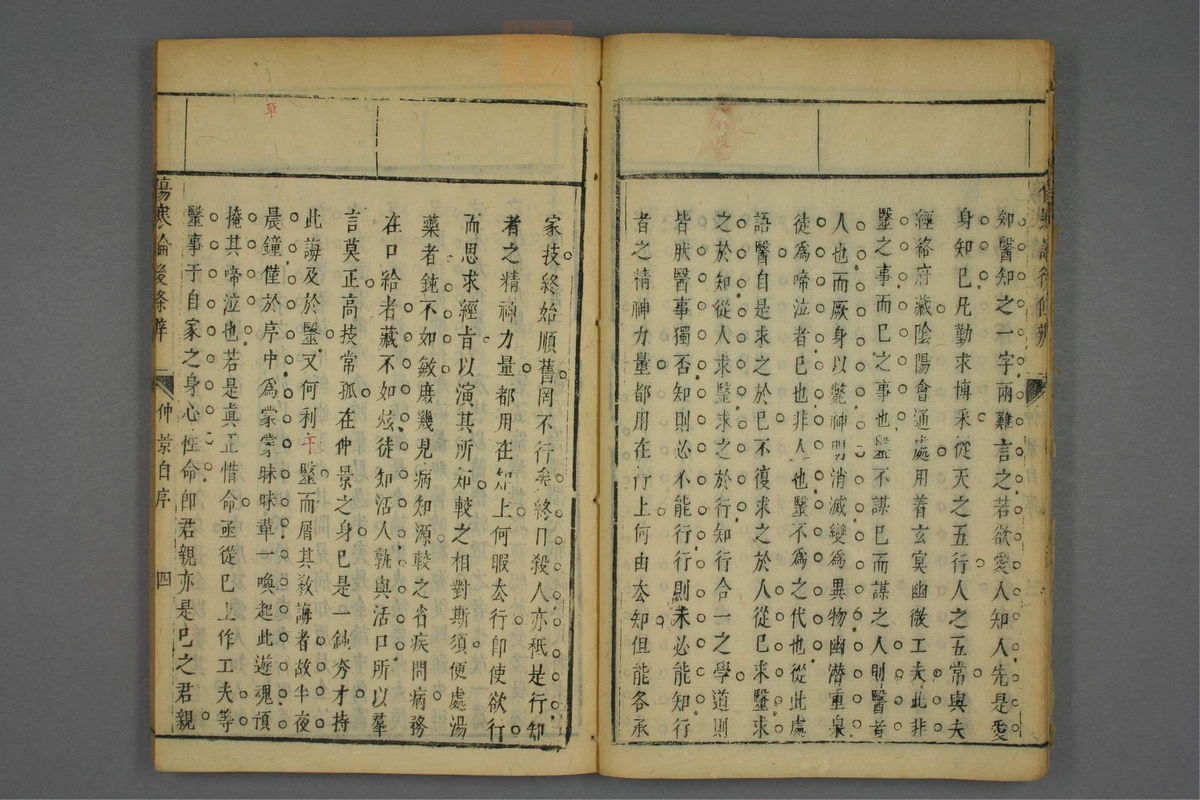 知醫知之一字兩難言之若欲愛人知人先是愛
身知己凡勤求博采從天之五行人之五常與夫
經絡府藏陰陽會通處用着玄冥幽微工夫此非
醫之事而已之事也醫不謀已而謀之人則醫者
人也而厥身以斃神明消滅變爲異物幽潛重泉
徒爲啼泣者已也非人也醫不爲之代也從此處
語醫自是求之於已不復求之於人從已求醫求
之於知從人求醫求之於行知行合一之學道則
皆肰醫事獨否知則必不能行行則未必能知行
者之精神力量都用在行上何由去知但能各承
家技終始順舊罔不行矣終日殺人亦秖是行知
者之精神力量都用在知上何暇去行即使欲行
而思求經旨以演其所知較之相對斯須便處湯
藥者鈍不如敏庻幾見病知源較之省疾問病務
在口給者藏不如炫徒知活人孰與活口所以羣
言莫正高技常孤在仲景之身已是一鈍秀才持
此誨及於醫又何利于醫而屑其敎誨者故半夜
晨鐘僅於序中爲蒙蒙昧昧軰一喚起此遊魂預
掩其啼泣也若是眞正惜命亟從已上作工夫等
醫事于自家之身心性命即君親亦是已之君親
傷寒論後條辨
仲景自序
四